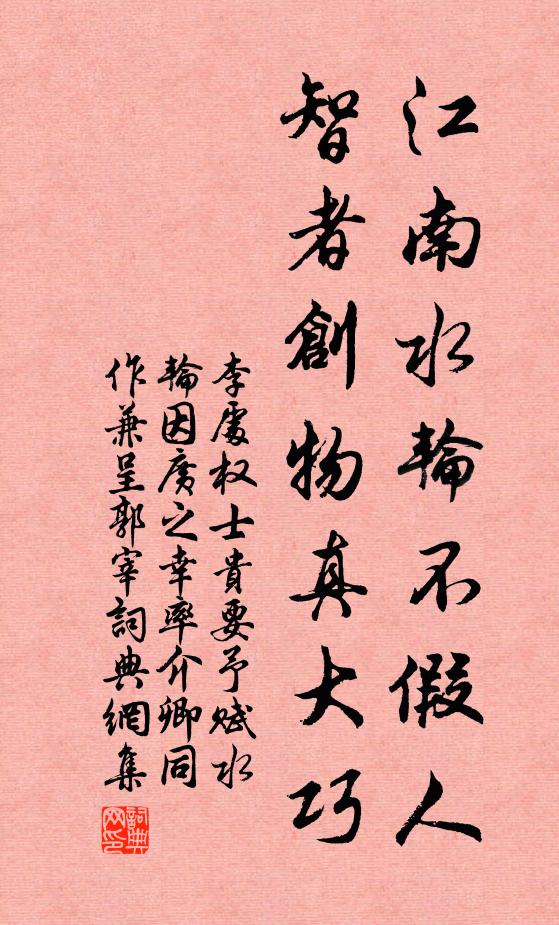 江南水輪不假人
智者創物真大巧
李處权士貴要予賦水
輪因廣之幸率介卿同
作兼呈郭宰詞典網集
詞典
网印